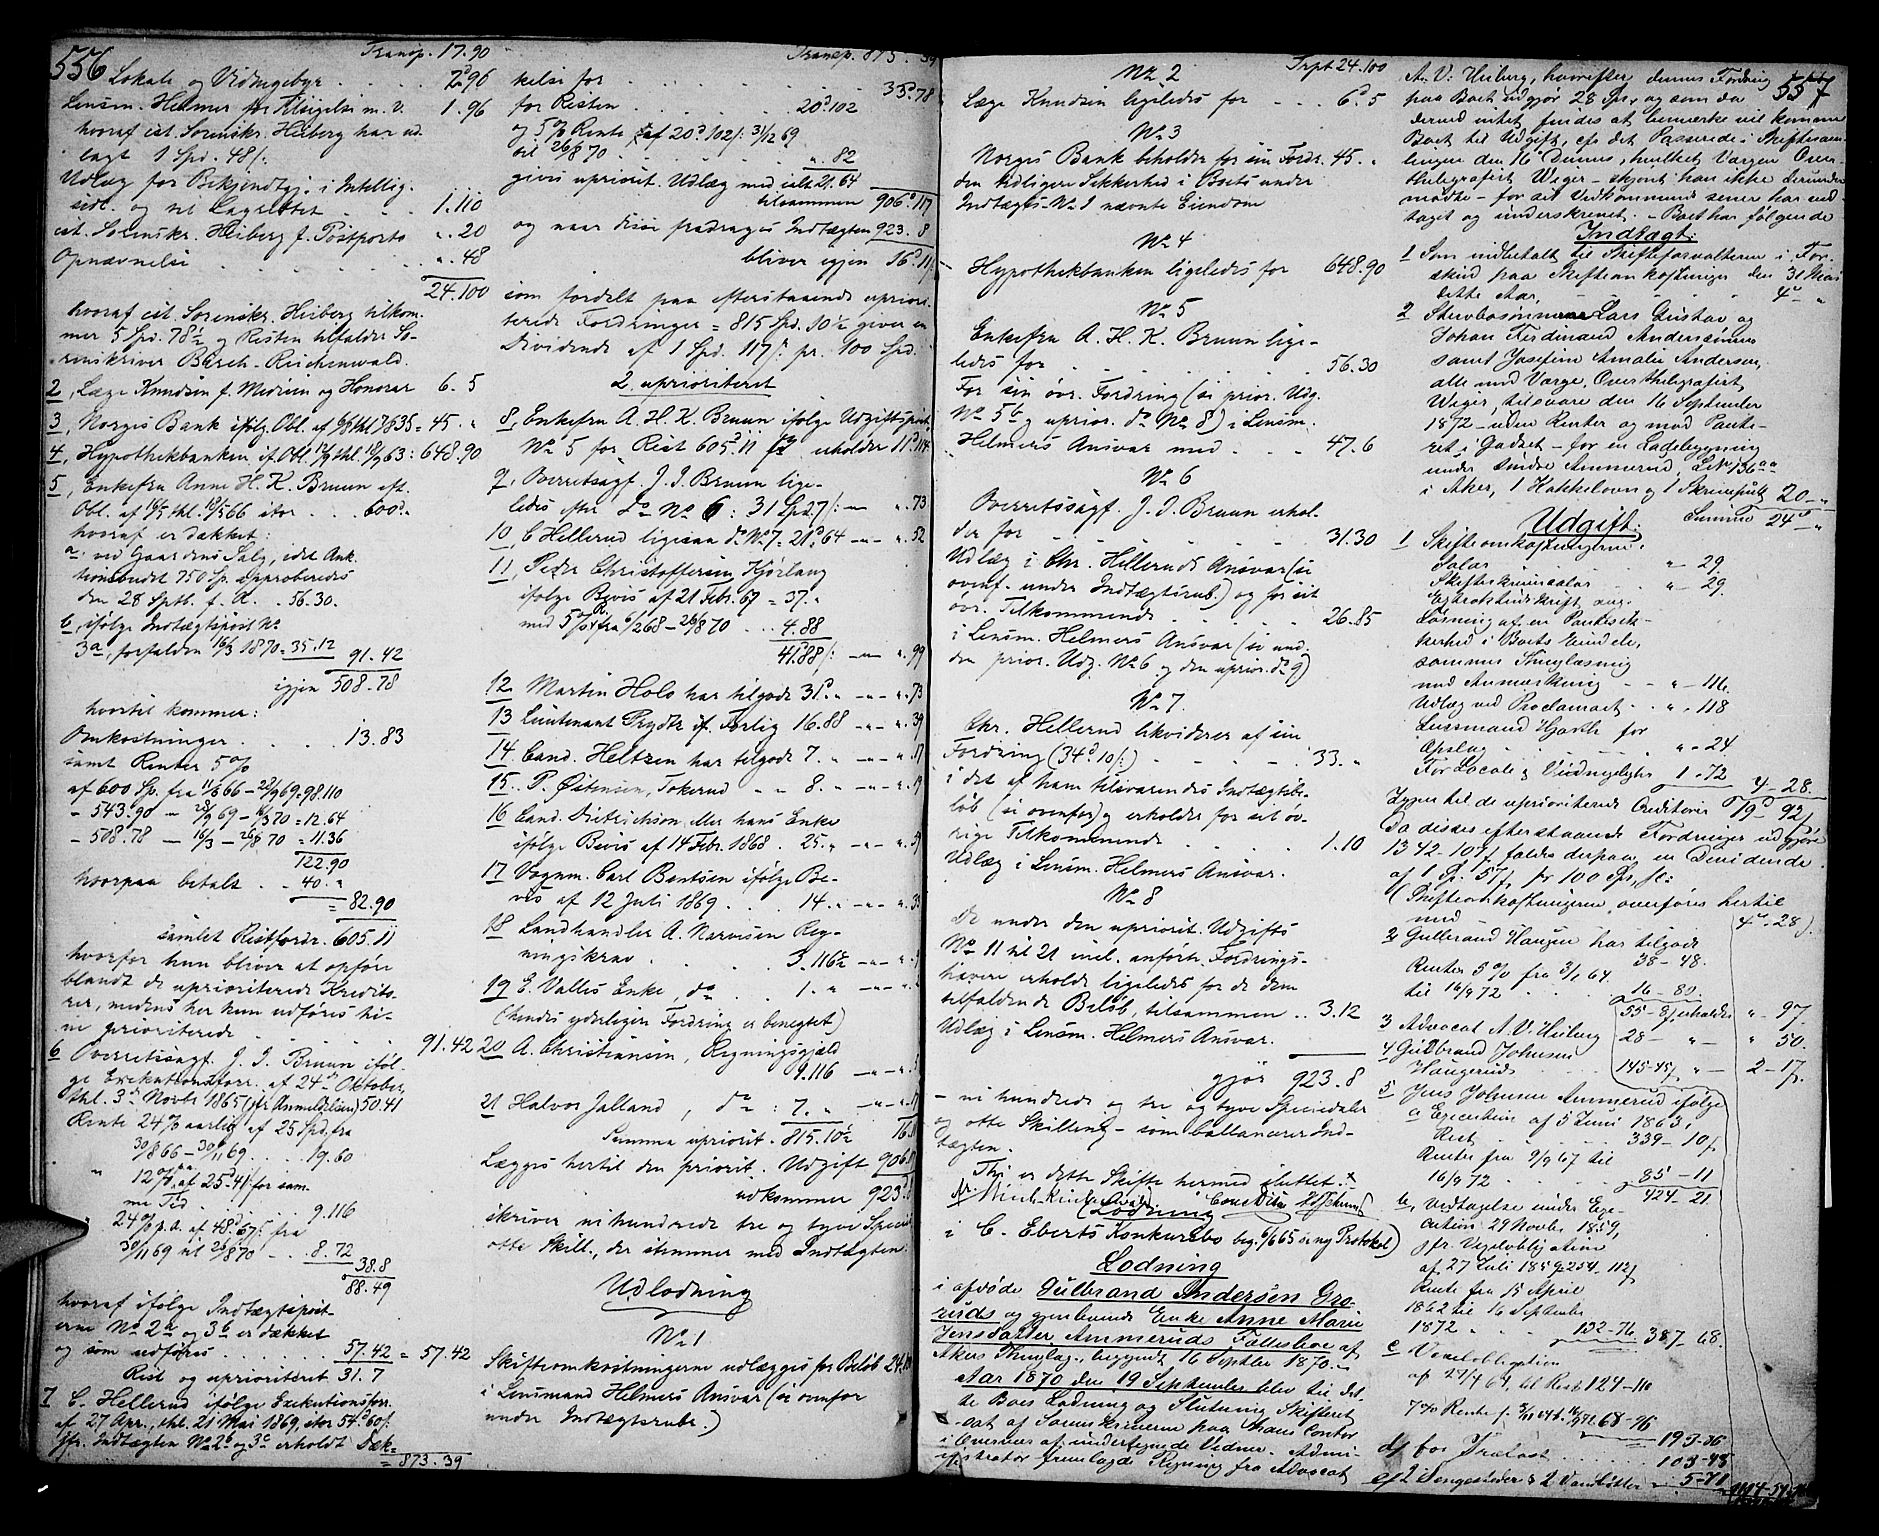 556
Transp. 17.90
Lokale og Vidnegebyr . . . . 2.96
Lensm. Helmer for Tilsigelse m. v. 1.96
hvoraf cst. Sorenskr. Heiberg har ud-
lagt 1 Spd. 48 /:
Udlæg for Bekjendtgj. i Intellig.
sedl. og til Lagrettet . . . 1.110
cst. Sorenskr. Heiberg f. Postporto ". 20
Opnævnelse . . . . . ". 48
24.100
hvoraf cst. Sorenskr. Heiberg tilkom-
mer 5 Spd. 78½ og Resten tilfalder So-
renskriver Barch-Reichenwald.
2, Læge Knudsen f. Medicin og Honorar 6. 5
3, Norges Bank ifølg Obl. af 1835 = 45. "
4, Hypothekbanken if. Obl. 648.90
5, Enkefru Anne H. K. Bruun eft.
Obl. af 66 stor . . . 600.
hvoraf er dækket:
a, ved Gaardens Salg, idet Auk-
tionsbudet 750 Sp. approberedes
den 28 Septb. f. A. . 56.30.
b, ifølge Indtægtspost No
3a, forfalden 16/3 1870 = 35.12
91.42
igjen 508.78
hvortil kommer:
Omkostninger . . . . 13.83
samt Renter 5%
af 600 Sp. fra 11/8 66 – 28/9 69 = 98.110
- 543.90 - 28/9 69 - 16/3 70 = 12.64
- 508.78 - 16/3 - 26/8 70 = 11.36
122.90
hvorpaa betalt . . 40. "
= 82.90
samlet Restfordr. 605.11
hvorfor hun bliver at opføre
blandt de uprioriterede Kredito-
rer, medens her kun udføres hi-
ne prioriterede . . . . . . 91.42
6, Overretssagf. J. J. Bruun iføl-
ge Exekutionsforr. af 24de Oktober,
thl. 3de Novbr 1865 (jfr Anmeldelsen) 50.41
Rente 24% aarlig af 25 Spd. fra
30/8 66 – 30/11 69 . . . 19.60
" 12% p.a. af 25.41 for sam-
me Tid . . . . . . 9.116
24% p.a. af 48.67 /: fra
30/11 69 til 26/8 70 . . . 8.72
38.8
88.49
hvoraf ifølge Indtægtspost-
erne No 2a og 3b er dækket
og som udføres . . . . 57.42 = 57.42
Rest og uprioriteret 31. 7
7, C. Hellerud ifølge Exekutionsforr.
af 27 Apr., thl. 21 Mai 1869, stor 54.60 /:
jfr. Indtægten No 2b og 3c erholdt Dæk=
= 873.39
Transp. 873. 39
kelse for . . . . . . . 33.78
for Resten . . . . 20.102
og 5% Rente af 20.102 /: 31/12 69
til 26/8 70 . . . . ". 82
gives uprior. Udlæg med ialt 21.64
tilsammen 906.117
og naar disse fradrages Indtægten 923. 8
bliver igjen 16. 11
som fordelt paa efterstaaende uprior-
terede Fordringer = 815 Spd. 10½ giver en
Dividende af 1 Spd. 117 /: pr. 100 Spd.
2. uprioriteret
8, Enkefru A. H. K. Bruun ifølge Udgiftspost
No 5 for Rest 605.11 erholder 11.114
9, Overretssagf. J. J. Bruun lige-
ledes efter do No 6: 31 Spd. 7 /: — ". 73
10, C Hellerud ligesaa do No 7 = 21.64 — " — ". 52
11, Peder Christoffersen Kjørlang
ifølge Bevis af 21 Febr. 67 = 37. "
med 5% fra 6/2 68 – 26/8 70 . . . 4.88
41.88 /: — " — ". 99
12. Martin Holo har tilgode 31. " — " — ". 73
13 Lieutenant Prydtz if. Forlig 16.88 — " — ". 39
14. Cand. Heltzen har tilgode 7. " — " — ". 17
15. P. Østensen, Tokerud " " 8. " — " — ". 19
16 Cand. Dietrichson, eller hans Enke
ifølge Bevis af 14 Febr. 1868 . 25. " — " — ". 59
17 Vognm. Carl Bentsen ifølge Be-
vis af 12 Juli 1869 . . . 14. " — " — ". 33
18 Landhandler A. Narvesen Reg-
ningskrav . . . . . . 3.116½ — " — ".
19 E. Valles Enke, do . . . 1. " — " — ".
(hendes yderligere Fordring er benegtet)
20 A. Christiansen, Regningsgjæld
9.116 — " — ".
21 Halvor Jalland, do : 7. " — " — ". 17
Summa uprior. 815.10½
Lægges hertil den priorit. Udgift 906.
udkommer 923. 8
skriver ni hundrede tre og tyve Specied.
otte Skill., der stemmer med Indtægten.
Udlodning
No 1
Skifteomkostningerne udlægges for Beløb 24.100
i Lensmand Helmers Ansvar (se ovenfor
under Indtægtsrubr.)
Trpt 24.100
No 2
Læge Knudsen ligeledes for . . . 6. 5
No 3
Norges Bank beholder for sin Fordr. 45. "
den tidligere Sikkerhed i Boets under
Indtægts-No 1 nævnte Eiendom
No 4
Hypothekbanken ligeledes for 648.90
No 5
Enkefru A. H. K. Bruun lige-
ledes for . . . . . . . 56.30
For sin øvr. Fordring (se prior. Udg.
No 5b og uprior. do No 8) i Lensm.
Helmers Ansvar med . . . . 47.6
No 6
Overretssagf. J. J. Bruun erhol-
der for . . . . . . . 31.30
Udlæg i Chr. Helleruds Ansvar (se
ovenf. under Indtægtsrub.) og for sit
øvr. Tilkommende . . . . . 26.85
i Lensm. Helmers Ansvar (se und.
den prior. Udg. No 6 og den uprior. do 9)
No 7.
Chr. Hellerud likviderer af sin
Fordring (34.10 /:) . . . . 33. "
i det af ham tilsvarende Indtægtsbe-
løb (se ovenfor) og erholder for sit øv-
rige Tilkommende . . . . . 1.10
Udlæg i Lensm. Helmers Ansvar.
No 8
De under den uprior. Udgifts
No 11 til 21 incl. anførte Fordrings-
havere erholde ligeledes for de dem
tilfaldende Beløb, tilsammen . . 3.12
Udlæg i Lensm. Helmers Ansvar.
gjør 923. 8
- ni hundrede og tre og tyve Speciedaler
og otte Skilling – som ballancerer Ind-
tægten.
Thi er dette Skifte hermed sluttet.
(Lodning
i C. Eberts Konkursbo beg. 6/6 65 se ny Protokol)
Lodning
i afdøde Gulbrand Andersen Gro-
ruds og gjenlevende Enke Anne Marie
Jensdatter Ammeruds Fællesbo af
Akers Thinglag, begyndt 16 Septbr 1870. –
Aar 1870 den 19 September blev til det-
te Boes Lodning og Slutning Skifteret
sat af Sorenskriveren paa hans Contor
i Overvær af undertegnede Vidner. Admi-
nistrator fremlagde Regning fra Advocat
557
A. V. Heiberg, hvorefter dennes Fordring
paa Boet udgjør 28 Spd, og som da
derimod intet fandtes at bemærke vil komme
Boet til Udgift, cfr det Passerede i Skiftesam-
lingen den 16de Dennes, hvilket Værgen Over-
thelegrafist Wiger – skjønt han ikke derunder
mødte – for sit Vedkommende senere har ved-
taget og underskrevet. – Boet har følgende
Indtægt:
1 Som indbetalt til Skifteforvalteren i For-
skud paa Skifteomkostninger den 31 Mai
dette Aar, . . . . . 4 - "
2 Stervbosønnerne Lars Gustav og
Johan Ferdinand Anderssønner
samt Josefine Amalie Andersen,
alle med Værge, Overthelegrafist,
Wiger, tilsvare den 16 September
1872 – uden Renter og mod Pante-
ret i Godset – for en Ladebygning
under Søndre Ammerud, L.No 136aa
i Aker, 1 Hakkelsovn og 1 Skrivepult 20 - "
Summa 24 - "
Udgift:
1 Skifteomkostningerne:
Salær . . . . . " - 29.
Skifteskriversalær . . . " - 29.
Extraktudskrift ang.
Løsning af en Pantesik-
kerhed i Boets Eiendele,
sammes Thinglæsning
med Anmærkning . . " - 116.
Udlæg ved Proclamaet . . " - 118
Lensmand Hjorth for
Opslag . . . . . " - 24
For Locale & Vidnegebyhr 1 - 72
4 - 28.
Igjen til de uprioriterede Creditorer 19 - 92 /
Da disses efterstaaende Fordringer udgjøre
1342 - 107 /, faldes derpaa en Dividende
af 1 Sp. 57 /, pr 100 Spd., sc:
(Skifteomkostningerne overføres hertil
med . . . . . . . . 4 - 28.)
2 Gulbrand Haugen har tilgode
38 - 48.
Renter 5% fra 3/1 64
til 16/9 72 . . . . 16 - 80.
55 - 8 / erholder " - 97
3 Advocat A. V. Heiberg 28 - " - " 50.
4 Gulbrand Johnsen
Haugerud . . . . 145 - 45 / " - 2 - 17 /.
5 Jens Johnsen Ammerud ifølge
a Execution af 5 Juni 1863,
Rest . . . . . 339 - 10 /
Renter fra 9/9 67 til
16/9 72 . . . . . 85 - 11
424 - 21
b, Vedtagelse under Exe-
cution 29 Novbr 1859,
jfr. Vexelobligation
af 27 Juli 1859 254 - 112 /
Rente fra 15 April
1862 til 16 September
1872 . . . . . 132 - 76. 387 - 68.
c Vexelobligation
af 27/4 64, til Rest 124 - 110
193 - 86
d, for Træløst . . . . . 103 - 48
e, 2 Sengesteder & 2 Vandbøtter . 5 - 71